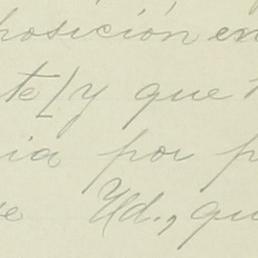 posición en
te[y que
ia por p
se Ud., qu